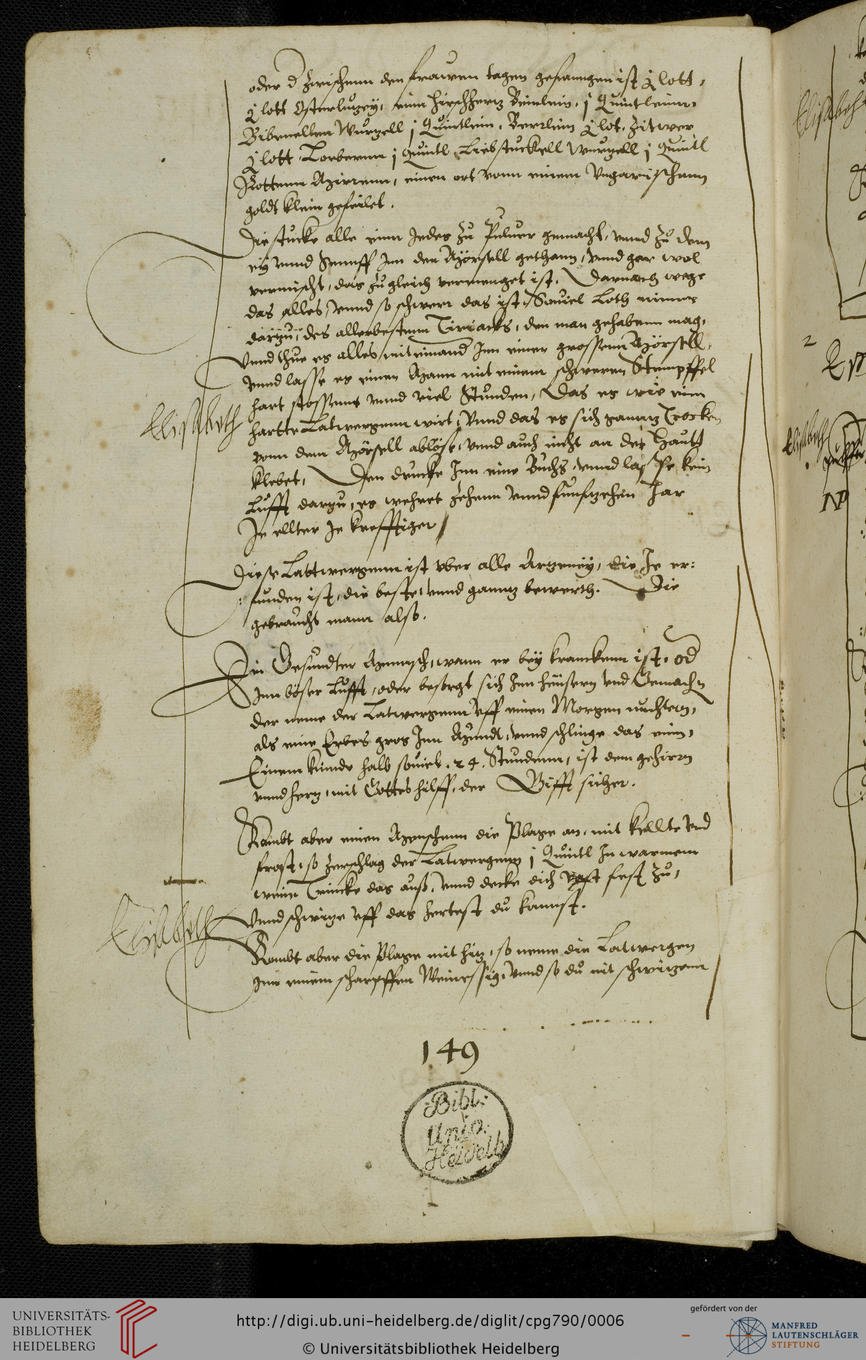 oder d zwischenn den frauwen tagen gefanngen ist j lott,
j lott Osterlutzey, einn hirschhertz Beinlein, j Quintleinn,
Bibenellen Wurtzell j Quintlein, Berrlein j lot, Zitwer
j lott Lorbernn j Quintl Liebstuckell wurtzell j Quintl
Rottenn Mirrenn, einen ort vonn einem Vngarischenn
goldt klein gefeilet.
Die stucke alle einn Jedes zu Puluer gemacht, vnnd zu dem
ey vnnd Sennff Inn den Mörsell gethann, vnnd gar wol
vermischt, das zu gleich vermenget ist, Darnach wege
das alles, vnnd so schwerr das ist, Souiel Loth nimme
dartzu, des allerbestenn Tiriacks, den man gehabenn mag,
Vnnd thue es alles mit einand Inn einen grossenn Mörsell,
vnnd lasse es einen Mann mit einem schwerenn Stempffel
hart stossenn vnnd viel Stunden, Das es wie einn
Elisabeth
hartte Latwergenn wirt, Vnnd das es sich ganntz trocken
vonn dem Mörsell ablöst, vnnd auch nicht an der Hautt
klebet, Den drucke Inn eine Buchs, vnnd lass kein
Lufft dartzu, es wehret zehenn vnnd funfzehen Jar
Je ellter Je krefftiger //
Diese Lattwergenn ist vber alle Artzeney, die Je er:
funden ist, die beste, vnnd ganntz bewerth. Die
gebrauchs mann also.
Ein Gesundter Mennsch, wann er bey krancken ist, od
Inn böser Lufft, oder besorgt sich Inn heüsern vnd Gemachn
der neme der Latwergenn vff einen Morgen nuchtern,
als eine Erbes gros Inn Mundt, vnnd schlinge das ein,
Einem kinde halb souiel, 24. Stundenn, ist dem gehirn
vnnd hertz, mit Gottes hilff, der Gifft sicher.
Kombt aber einen Menschenn die Plage an, mit kellte vnd
frost, so zerschlag der Latwergenn j Quintl In warmem
wein Trincke das auß, vnnd decke dich fest zu,
Elisabeth
Vnnd schwitze vff das hertest du kannst.
Kombt aber die Plage mit hitz, so neme die Latwergen
Inn einem scharpffen Weinessig, Vnnd so du nit schwitzenn
149
Bibl:
Univ.
Heidelb
Elisabeth
2
Elisabeth
UNIVERSITÄTS-
BIBLIOTHEK
HEIDELBERG
http://digi.ub.uni-heidelberg.de/diglit/cpg790/0006
© Universitätsbibliothek Heidelberg
gefördert von der
MANFRED
LAUTENSCHLÄGER
STIFTUNG